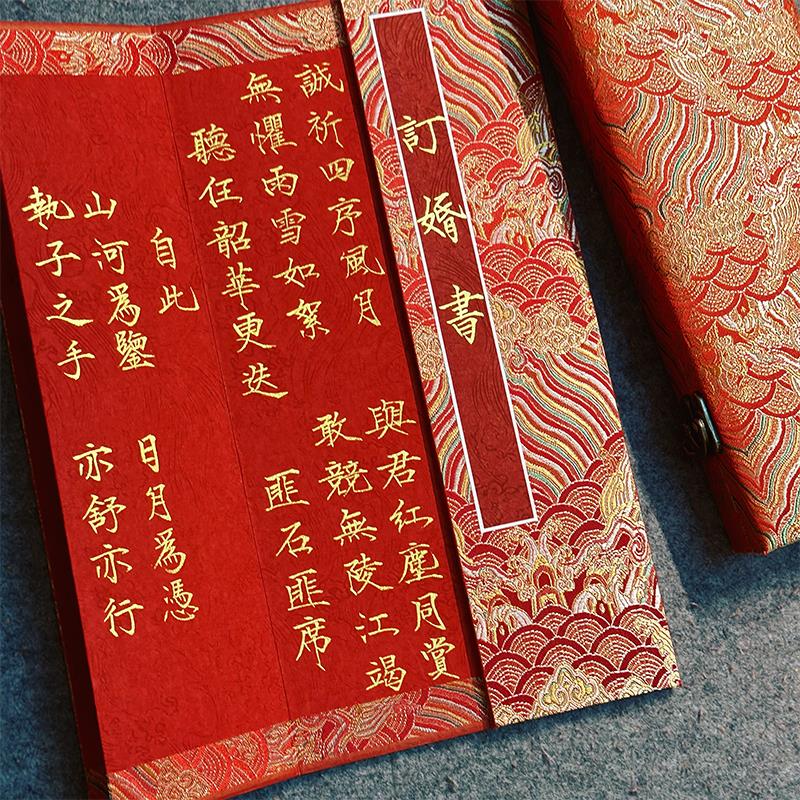 訂婚書
誠祈四序風月 與君紅塵同賞
無懼雨雪如絮 敢競無陵江竭
聽任韶華更迭 匪石匪席
自此
山河爲鑒 日月爲憑
執子之手 亦舒亦行